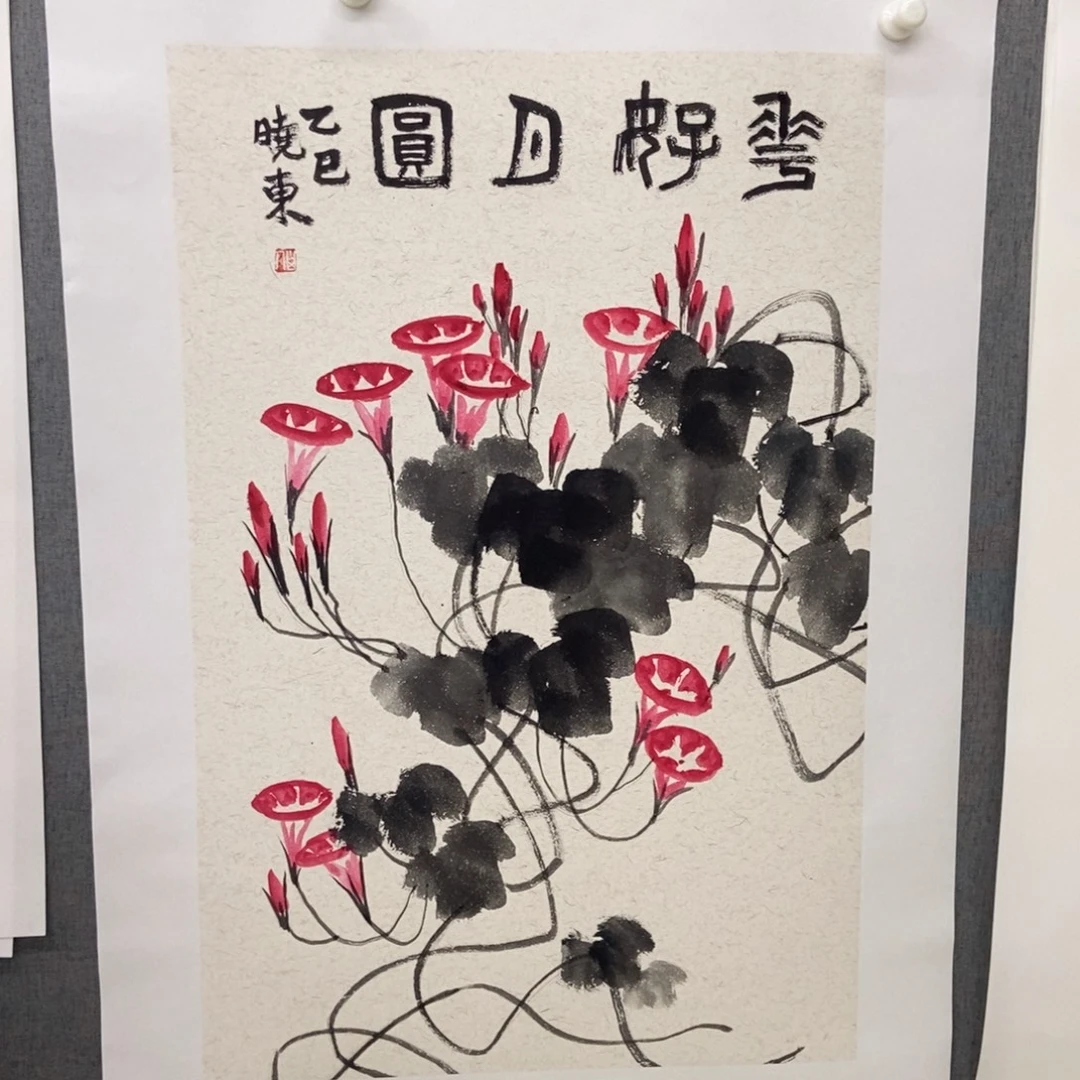 花好月圓
乙巳
曉東